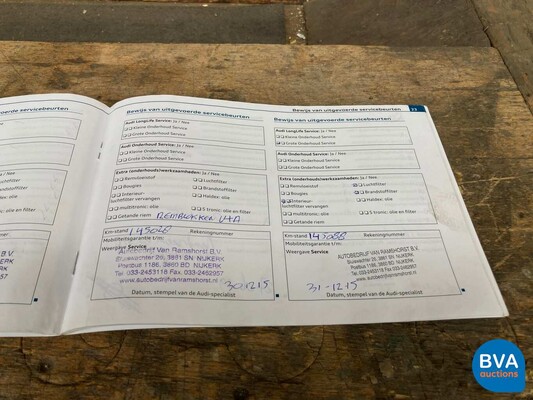 Bewijs van uitgevoerde servicebeurten
Audi LongLife Service: Ja / Nee
Kleine Onderhoud Service
Grote Onderhoud Service
Audi Onderhoud Service: Ja / Nee
Kleine Onderhoud Service
Grote Onderhoud Service
Extra (onderhouds)werkzaamheden:
Remvloeistof
Luchtfilter
Bougies
Brandstoffilter
Interieur-
luchtfilter vervangen
multitronic: olie
S tronic: olie en filter
Getande riem REMBLOKKEN V+A
Km-stand
Rekeningnummer
Mobiliteitsgarantie t/m:
Weergave Service
Autobedrijf Van Ramshorst B.V.
Buiswechter 26, 3861 SN NIJKERK
Postbus 1186, 3860 BD NIJKERK
Tel. 033-2453118 Fax. 033-2462957
www.autobedrijfvanramshorst.nl
30 12 15
Datum, stempel van de Audi-specialist
Bewijs van uitgevoerde servicebeurten 23
Bewijs van uitgevoerde servicebeurten
Audi LongLife Service: Ja / Nee
Kleine Onderhoud Service
Grote Onderhoud Service
Audi Onderhoud Service: Ja / Nee
Kleine Onderhoud Service
Grote Onderhoud Service
Extra (onderhouds)werkzaamheden: Ja / Nee
Remvloeistof
Luchtfilter
Bougies
Brandstoffilter
Interieur-
luchtfilter vervangen
multitronic: olie
S tronic: olie en filter
Getande riem
Km-stand
Rekeningnummer
Mobiliteitsgarantie t/m:
Weergave Service
AUTOBEDRIJF VAN RAMSHORST B.V.
31-12-15
Datum, stempel van de Audi-specialist
BVA
auctions